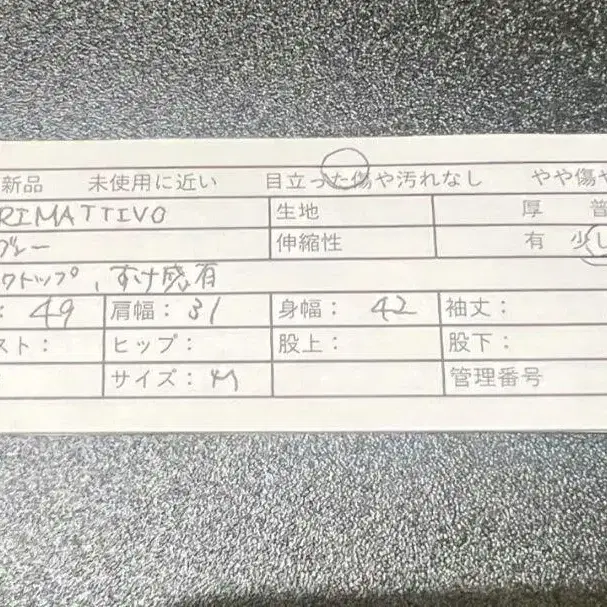 新品 未使用に近い 目立った傷や汚れなし やや傷や
RIMATTIVO 生地 厚 普
グレー 伸縮性 有 少し
クトップ、すけ感有
: 49 肩幅: 31 身幅: 42 袖丈:
スト: ヒップ: 股上: 股下:
サイズ: M 管理番号